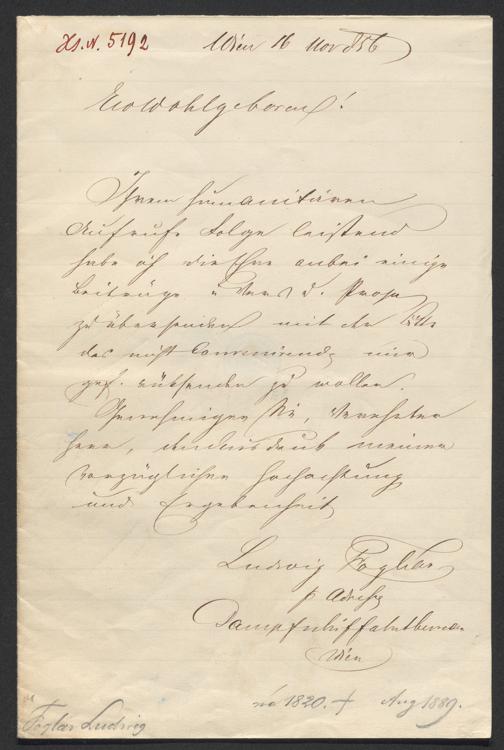 Hs. N. 5192
Wien 16 Nov 856
Ew Wohlgeboren!
Ihrem humanitären
Aufrufe Folge leistend
habe ich die Ehre anbei einige
Beiträge in Vers u. Prosa
zu übersenden mit der Bitte
das nicht Convenirende mir
gef. rücksenden zu wollen.
Genehmigen Sie, Verehrter
Herr, den Ausdruck meiner
vorzüglichen Hochachtung
und Ergebenheit
Ludwig Foglar
p Adresse
Dampfschiffahrtbureau
Wien
1820. † Aug 1889.
Foglar Ludwig